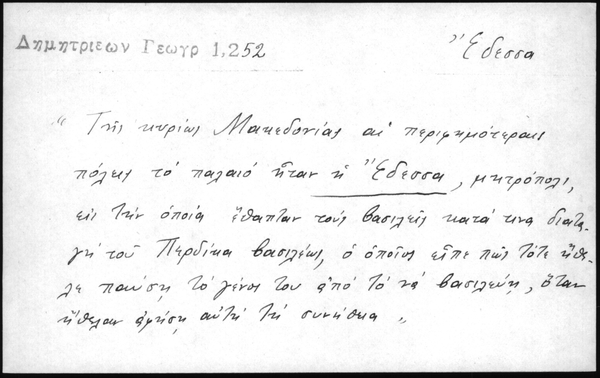 Δημητριεων Γεωγρ 1,252
Ἔδεσσα
“ Τῆς κυρίως Μακεδονίας αἱ περιφημότεραις
πόλεις τὸ παλαιὸ ἦταν ἡ Ἔδεσσα, μητρόπολι,
εἰς τὴν ὁποία ἔθαπταν τοὺς βασιλεῖς κατά τινα διατα-
γὴ τοῦ Περδίκα βασιλέως, ὁ ὁποῖος εἶπε πὼς τότε ἤθε-
λε παύσῃ τὸ γένος του ἀπὸ τὸ νὰ βασιλεύῃ, ὅταν
ἤθελαν ἀφήσῃ αὐτὴ τὴ συνήθεια „